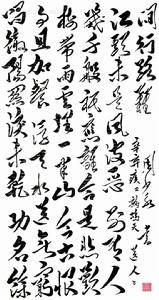 唱徹陽關淚未乾功名餘
事且加餐浮天水送無窮
樹帶雨雲埋一半山今古恨
幾千般祇應離合是悲歡
江頭未是風波惡別有人
間行路難
辛棄疾詞鷓鴣天送人